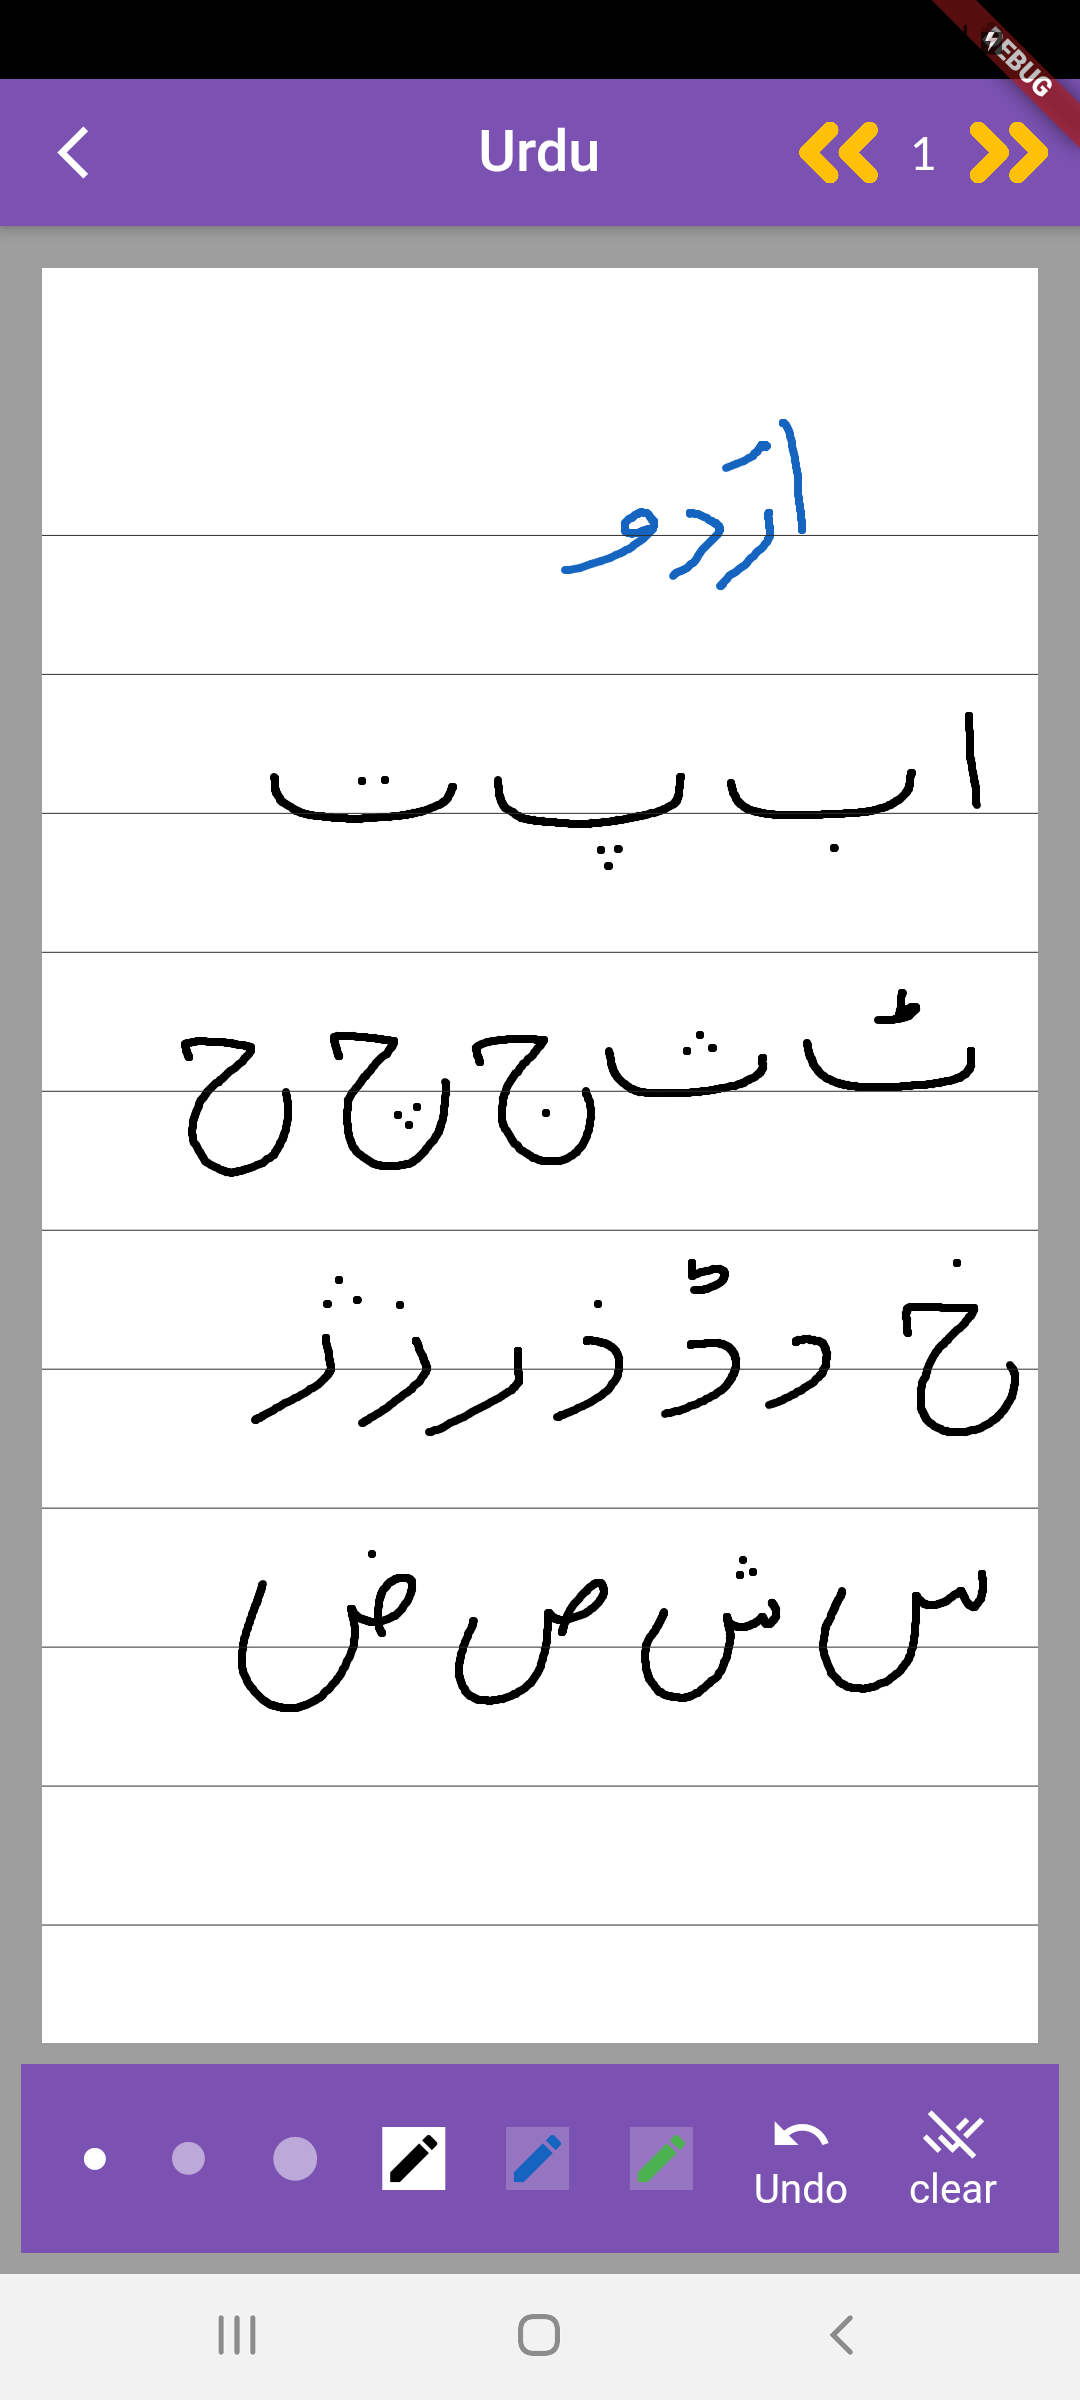 DEBUG
Urdu 1
اَردو
ا ب پ ت
ٹ ث ج چ ح
خ د ڈ ذ ر ز ژ
س ش ص ض
Undo clear